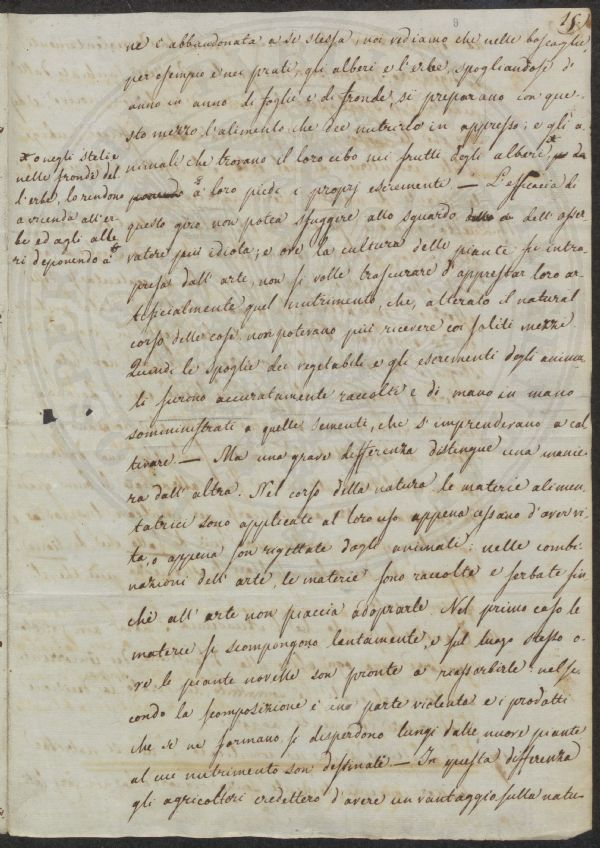 15.
9.
ne è abbandonata a se stessa, noi vediamo che nelle boscaglie
per esempio e nei prati, gli alberi e l'erbe, spogliandosi d'
anno in anno di foglie e di fronde, si preparano con que-
sto mezzo l'alimento che dee nutrirle in appresso; e gli a-
nimali che trovano il loro cibo nei frutti degli alberi,
a' loro piedi i proprj escrementi. — L'efficacia di
questo giro non potea sfuggire allo sguardo dell'osser-
vatore più idiota; e ove la cultura delle piante fu intra-
presa dall'arte, non si volle trascurare d'apprestar loro ar-
tificialmente quel nutrimento, che, alterato il natural
corso delle cose, non potevano più ricevere coi soliti mezzi.
Quindi le spoglie dei vegetabili e gli escrementi degli anima-
li furono accuratamente raccolti e di mano in mano
somministrati a quelle sementi, che s'imprendevano a col-
tivare. — Ma una grave differenza distingue una manie-
ra dall'altra. Nel corso della natura le materie alimen-
tatrici sono applicate al loro uso appena cessano d'aver vi-
ta, o appena son rigettate dagli animali: nelle combi-
nazioni dell'arte, le materie sono raccolte e serbate fin
chè all'arte non piaccia adoprarle. Nel primo caso le
materie si scompongono lentamente, e sul luogo stesso o-
ve le piante novelle son pronte a riassorbirle: nel se-
condo la scomposizione è in parte violenta e i prodotti
che se ne formano si disperdono lungi dalle nuove piante
al cui nutrimento son destinati — In questa differenza
gli agricoltori credettero d'avere un vantaggio sulla natu-
o negli steli e
nelle fronde del
l'erbe, lo rendono
a vicenda all'er-
be ed agli albe-
ri deponendo a'